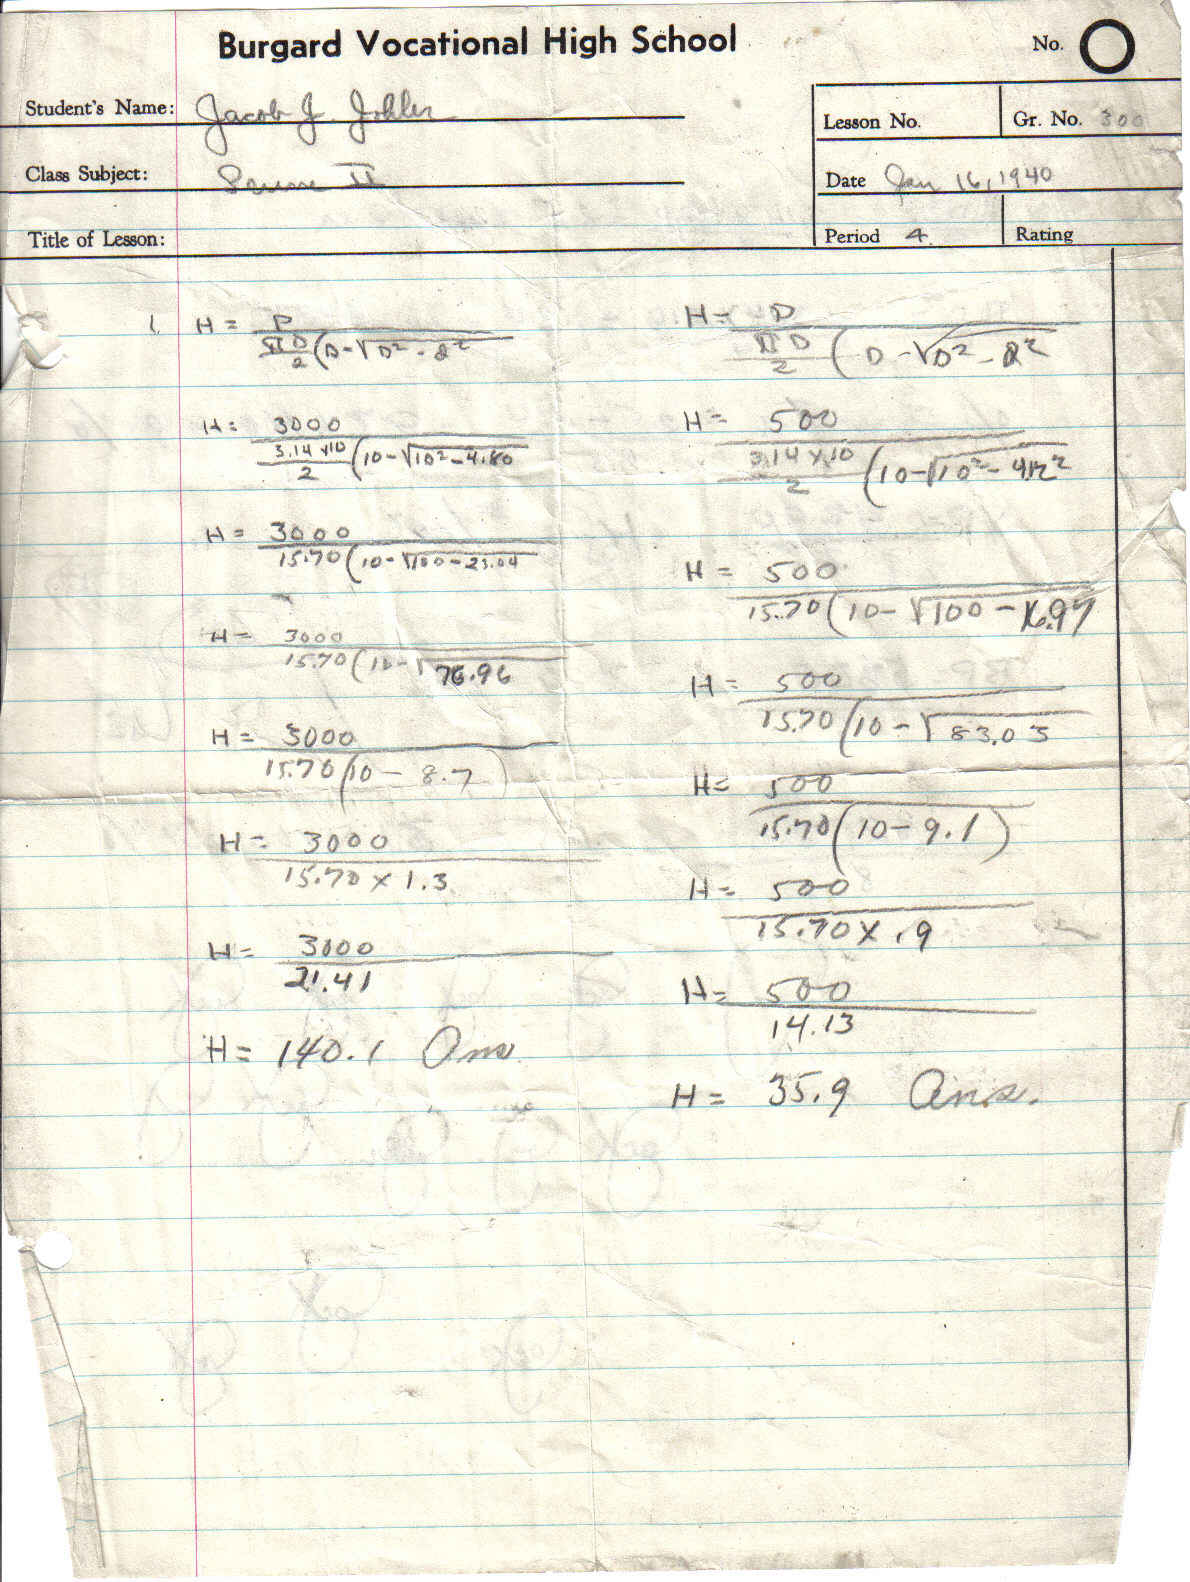 Burgard Vocational High School
No. O
Student's Name: Jacob J.
Lesson No.
Gr. No. 300
Class Subject: II
Date Jan 16, 1940
Title of Lesson:
Period 4
Rating
1. H = P / ΠD/2 (D-√D² - d²
H = 3000 / 3.14 x10/2 (10-√10² - 4.80
H = 3000 / 15.70 (10-√100-23.04
H = 3000 / 15.70 (10-√76.96
H = 3000 / 15.70 (10 - 8.7)
H = 3000 / 15.70 x 1.3
H = 3000 / 21.41
H = 140.1 Ans.
H = P / ΠD/2 (D-√D² - d²
H = 500 / 3.14 x 10/2 (10-√10² - 4.12²
H = 500 / 15.70 (10-√100 - 16.97
H = 500 / 15.70 (10-√83.03
H = 500 / 15.70 (10-9.1)
H = 500 / 15.70 x .9
H = 500 / 14.13
H = 35.9 Ans.